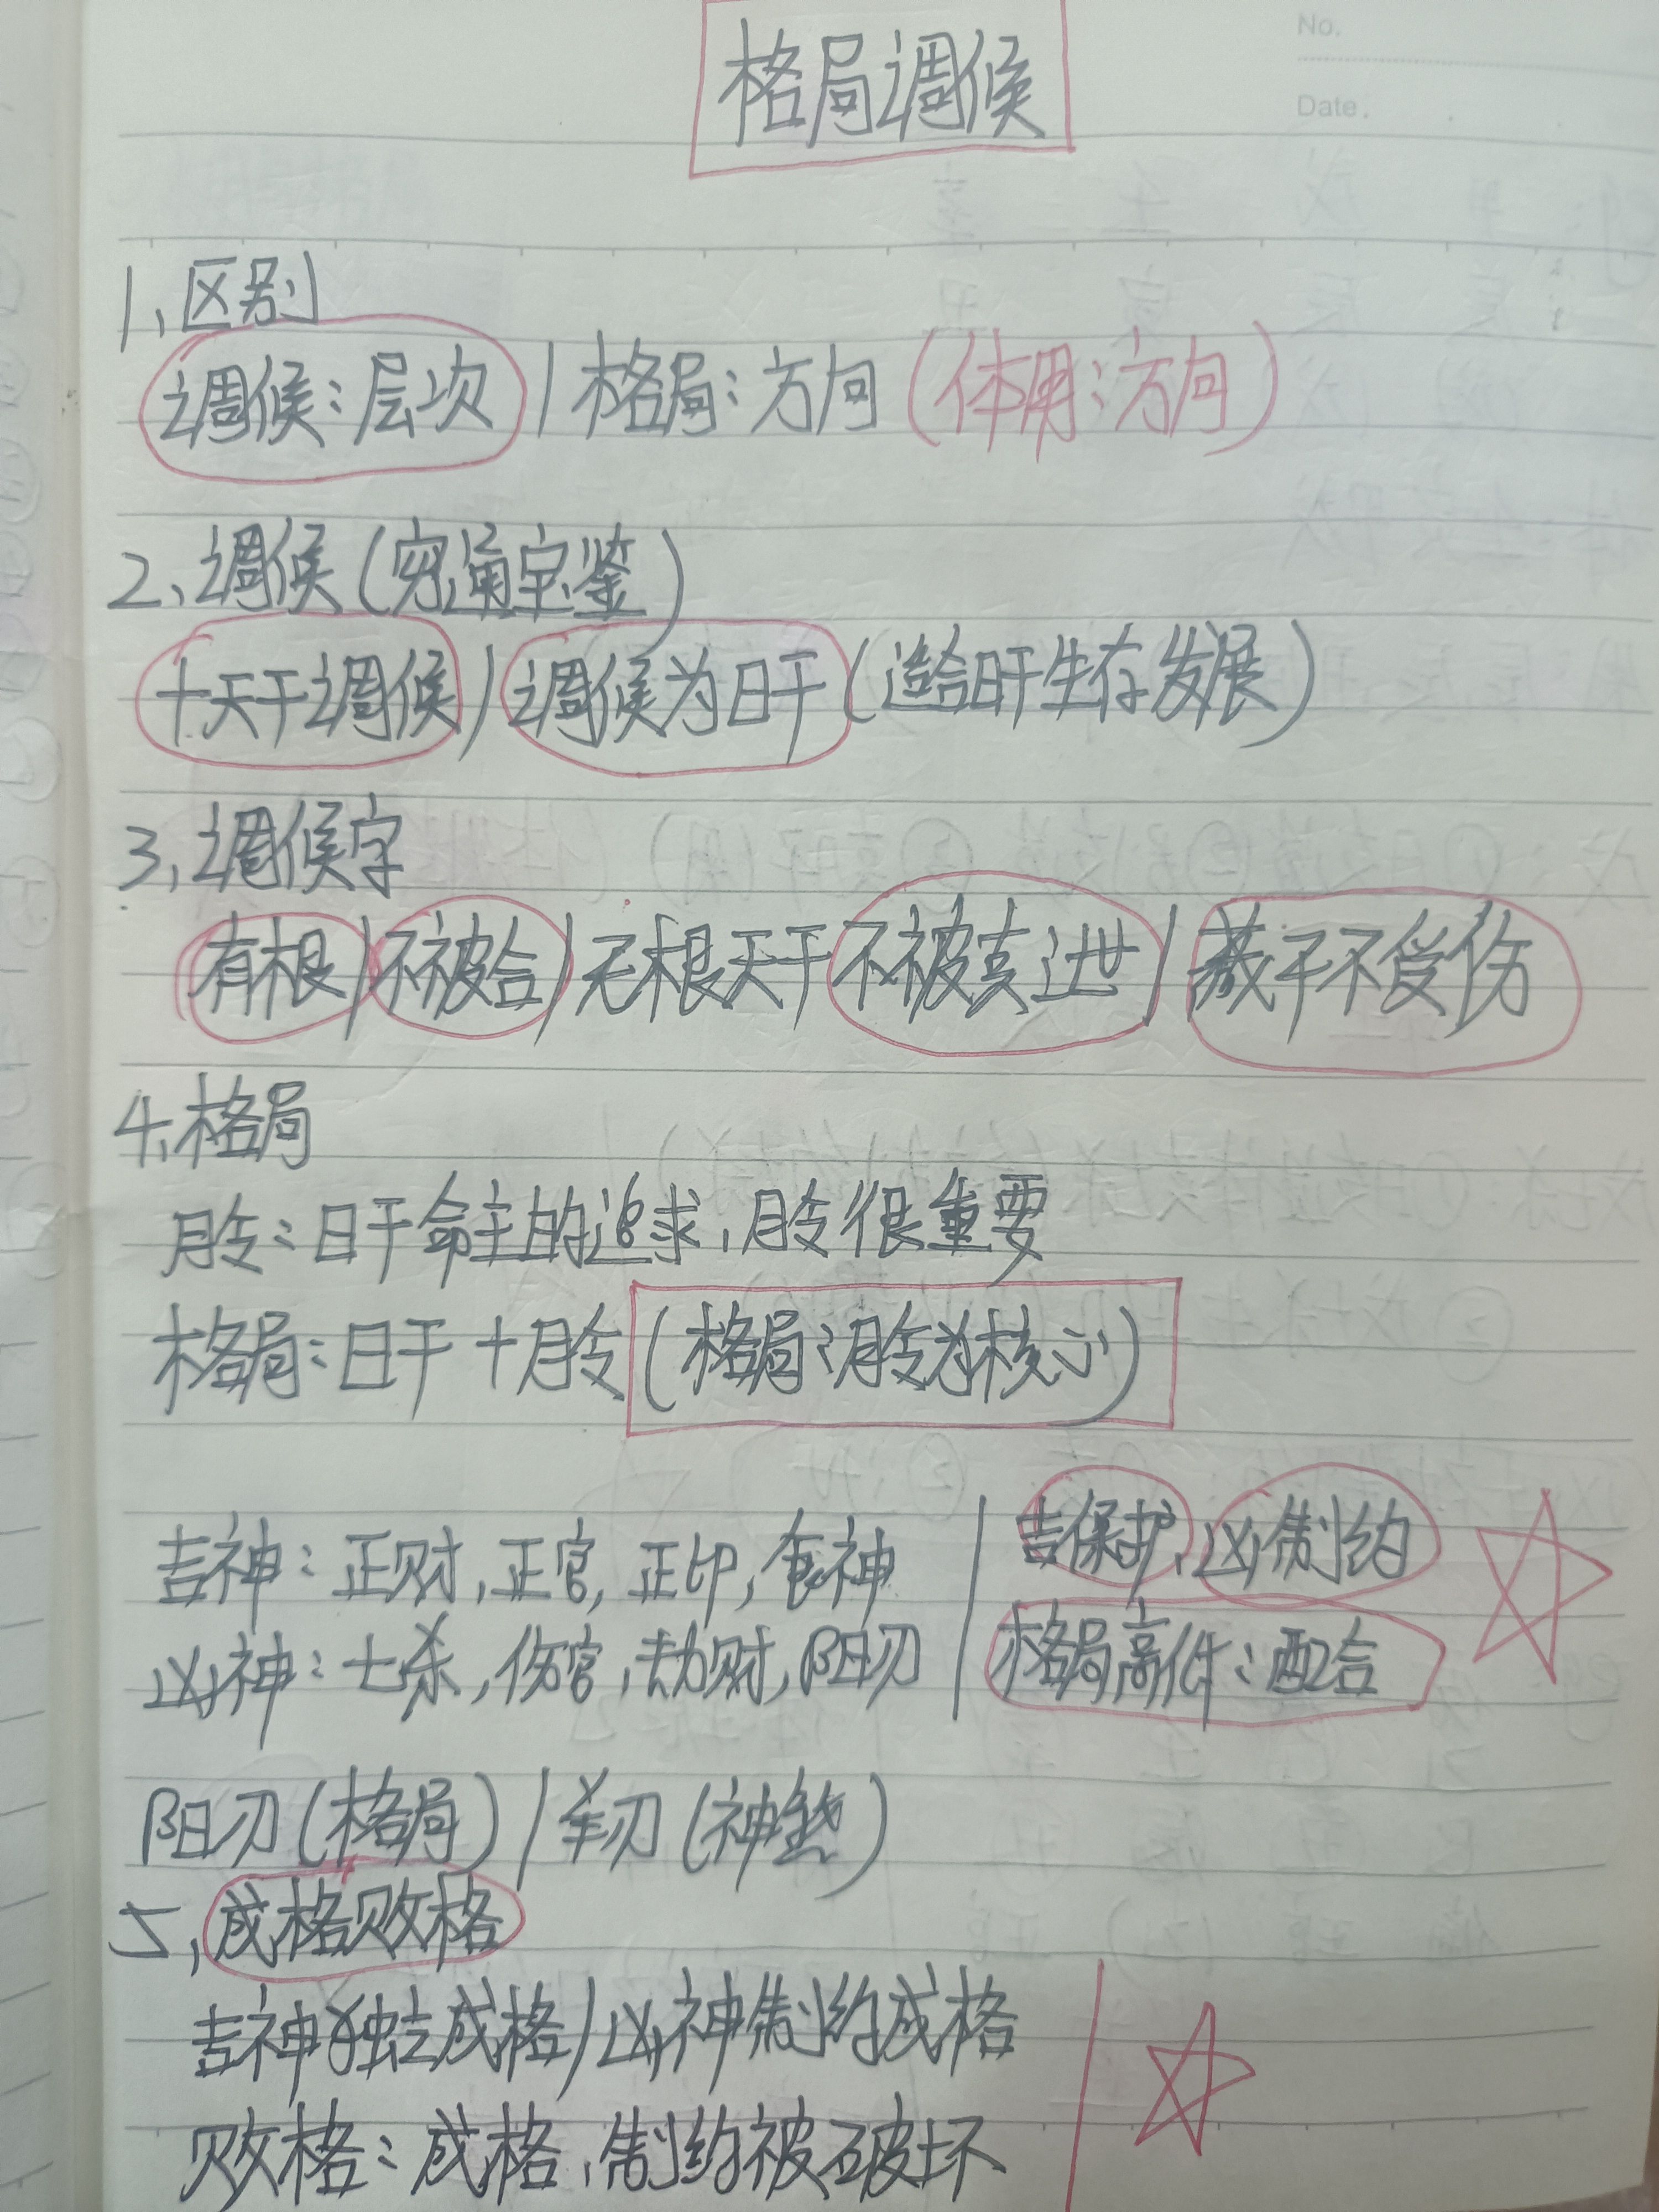 No.
Date.
格局调候
1、区别
调候：层次 | 格局：方向（体用：方向）
2、调候（穷通宝鉴）
十天干调候 / 调候为日干（适合日干生存发展）
3、调候字
有根 / 不被合 / 无根天干不被真 / 藏干不受伤
4、格局
月令：日干命主的追求，月令很重要
格局：日干+月令（格局：月令为核心）
吉神：正财，正官，正印，食神 | 吉保护，凶制约
凶神：七杀，伤官，劫财，阳刃 | 格局高低：配合
阳刃（格局）/ 羊刃（神煞）
5、成格败格
吉神独立成格 / 凶神制约成格
败格：成格，制约被破坏